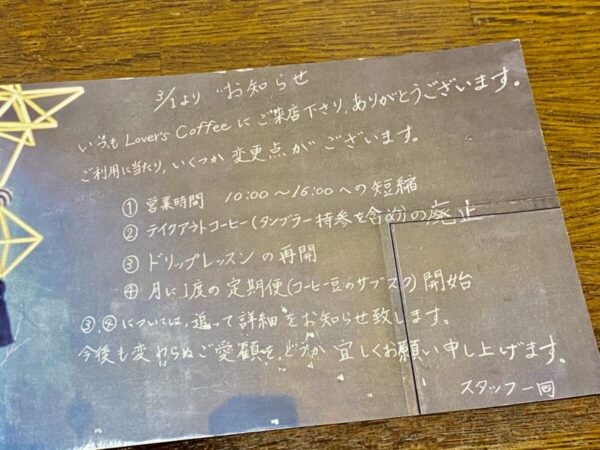 3/1より お知らせ
いつも Lover's Coffee にご来店下さり、ありがとうございます。
ご利用に当たり、いくつか変更点がございます。
① 営業時間 10:00〜16:00への短縮
② テイクアウトコーヒー(タンブラー持参を含め)の廃止
③ ドリップレッスンの再開
④ 月に1度の定期便(コーヒー豆のサブスク)開始
③,④については、追って詳細をお知らせ致します。
今後も変わらぬご愛顧を、どうか宜しくお願い申し上げます。
スタッフ一同